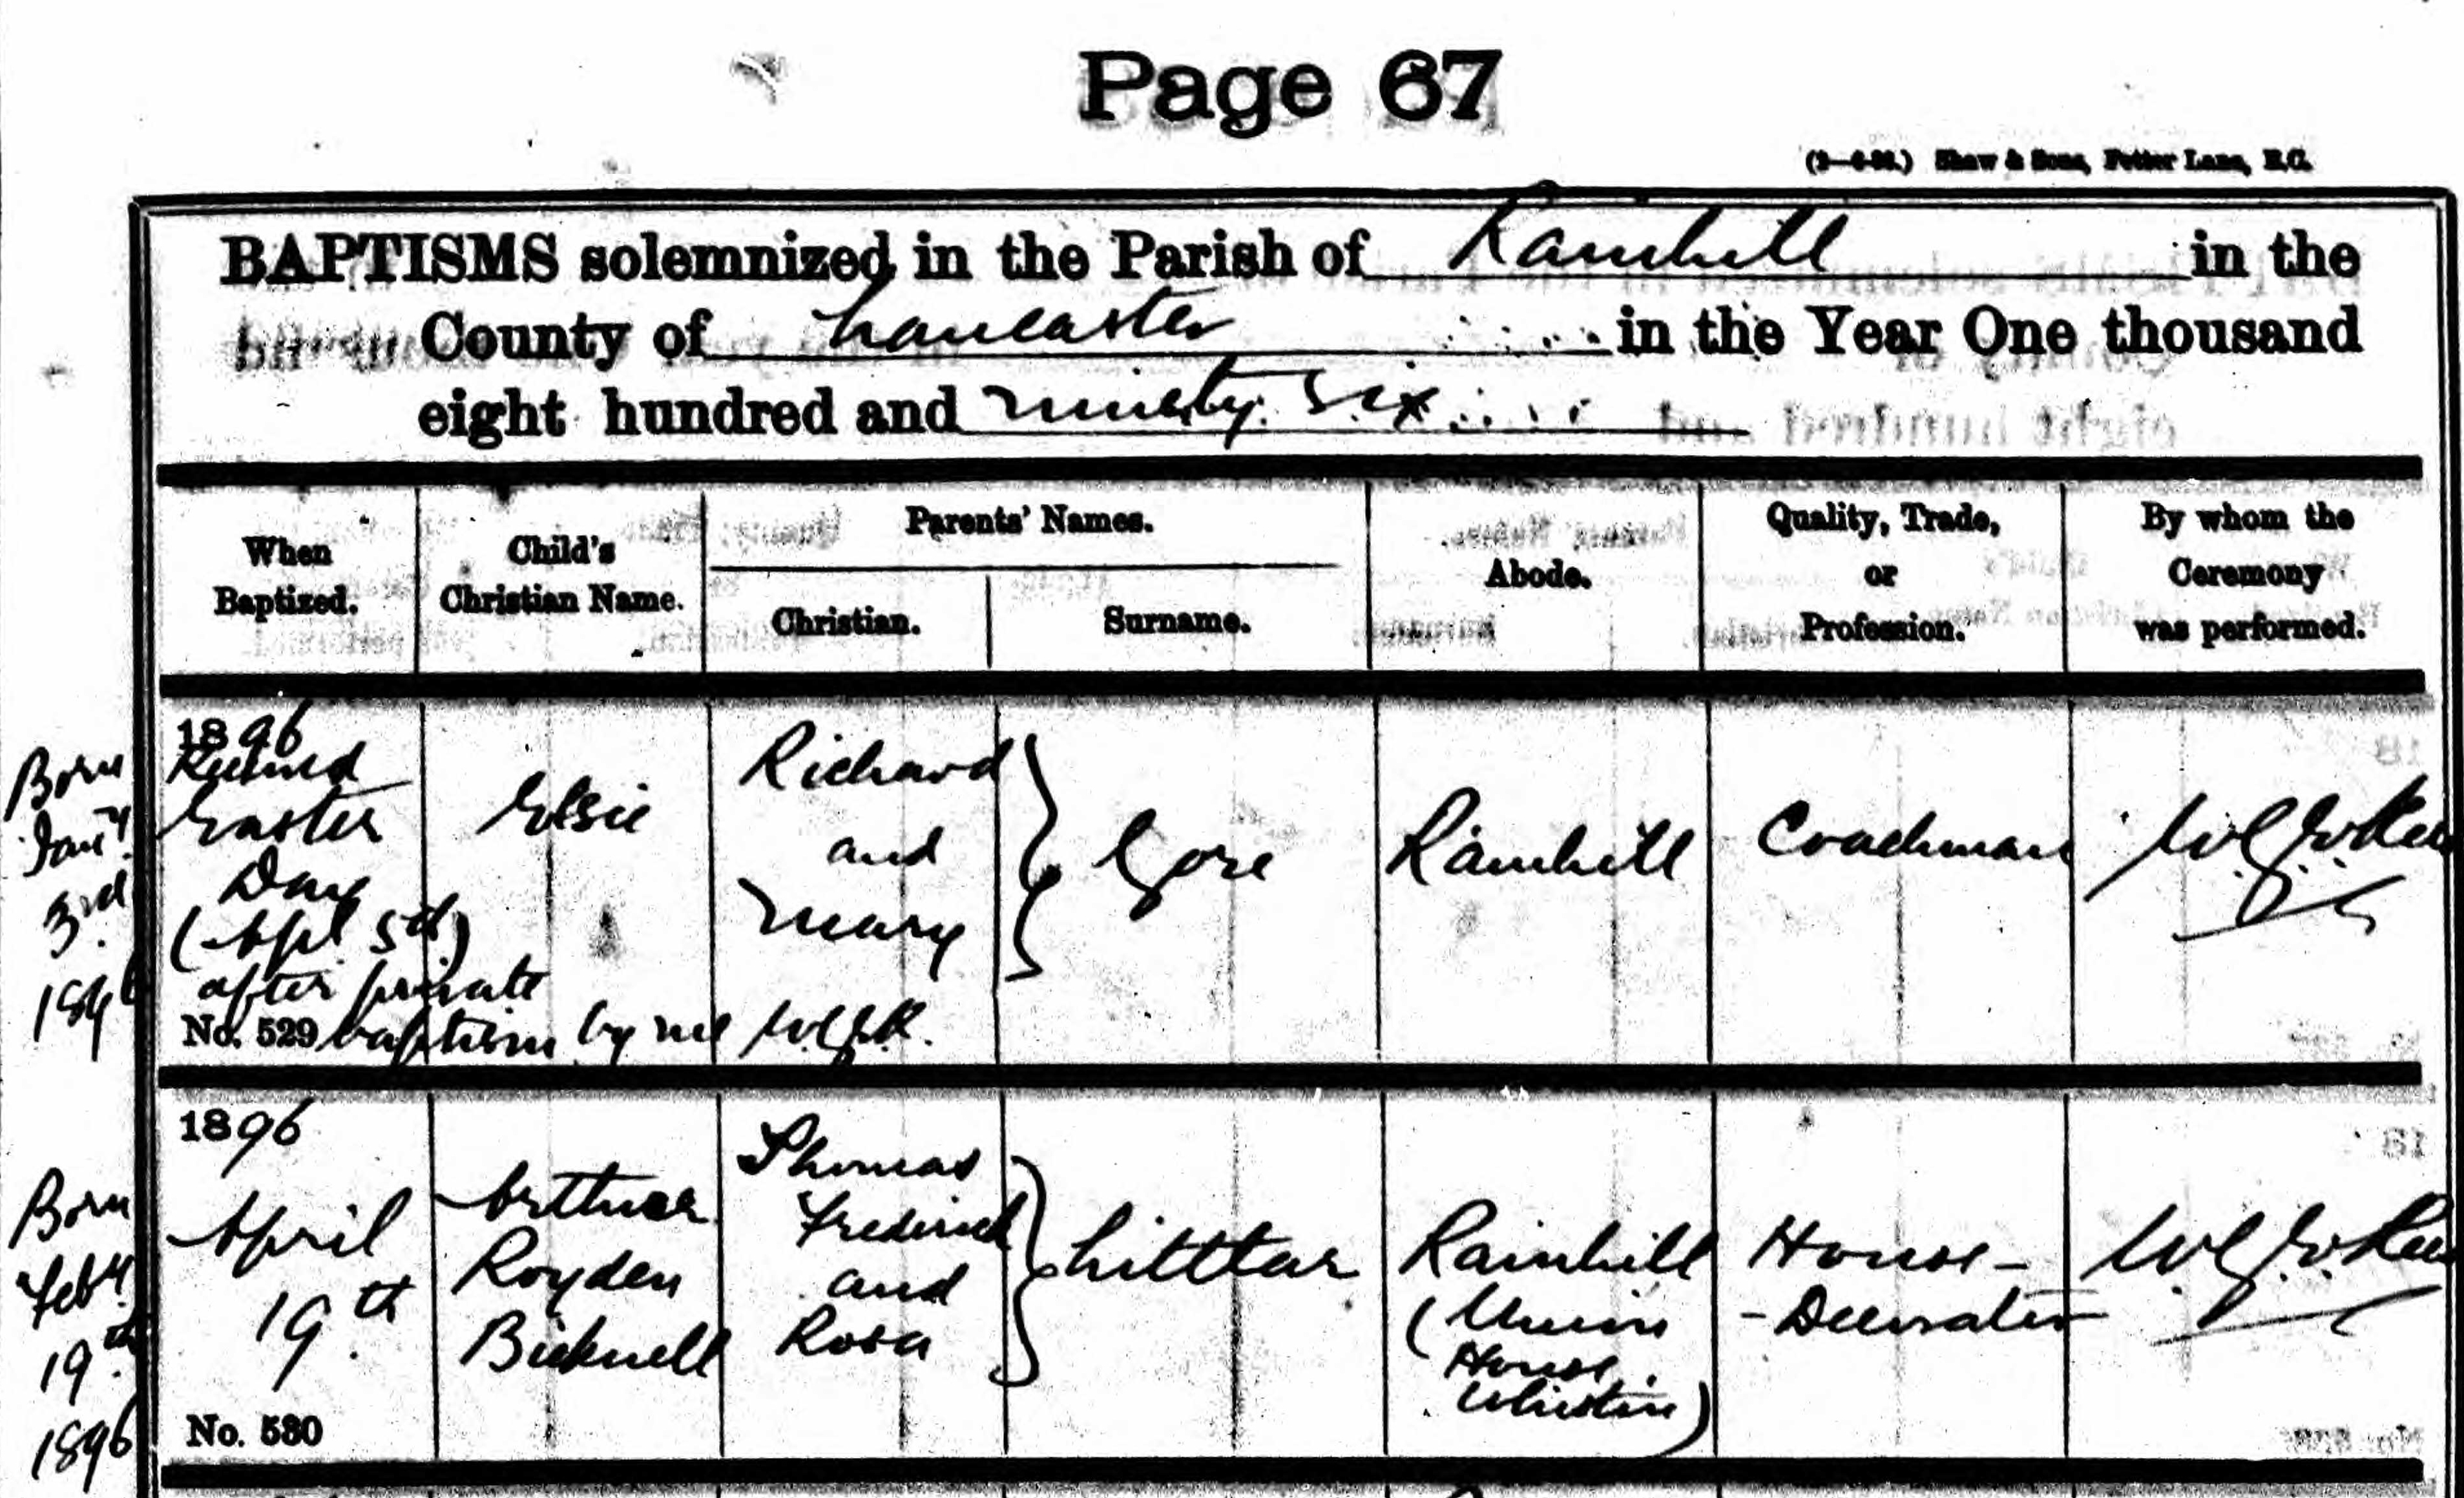 Page 67
Shaw & Sons, Fetter Lane, E.C.
BAPTISMS solemnized in the Parish of Rainhill in the
County of Lancaster in the Year One thousand
eight hundred and ninety six
When Baptized.
Child's Christian Name.
Parents' Names.
Christian.
Surname.
Abode.
Quality, Trade, or Profession.
By whom the Ceremony was performed.
Born Jany 3rd 1896
1896
Received
Easter
Day
(Apl 5th)
after private
No. 529 baptism by me
Elsie
Richard
and
Mary
Gore
Rainhill
Coachman
Born Feby 19th 1896
1896
April
19th
No. 530
Arthur
Royden
Bicknell
Thomas
Frederick
and
Rosa
Littlar
Rainhill
(Union
House
Whiston)
House-
-Decorator